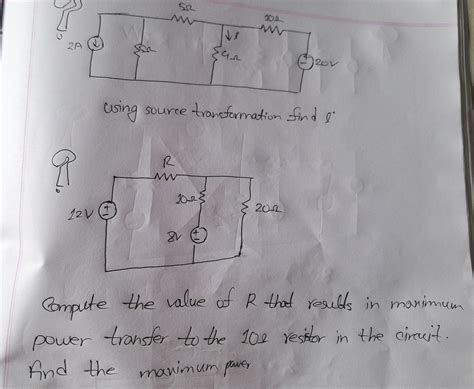 5Ω
10Ω
2A
↓i
4Ω
+
-
20V
using source transformation find i
R
10Ω
12V
+
-
20Ω
8V
+
-
Compute the value of R that results in maximum
power transfer to the 10Ω resistor in the circuit.
find the maximum power